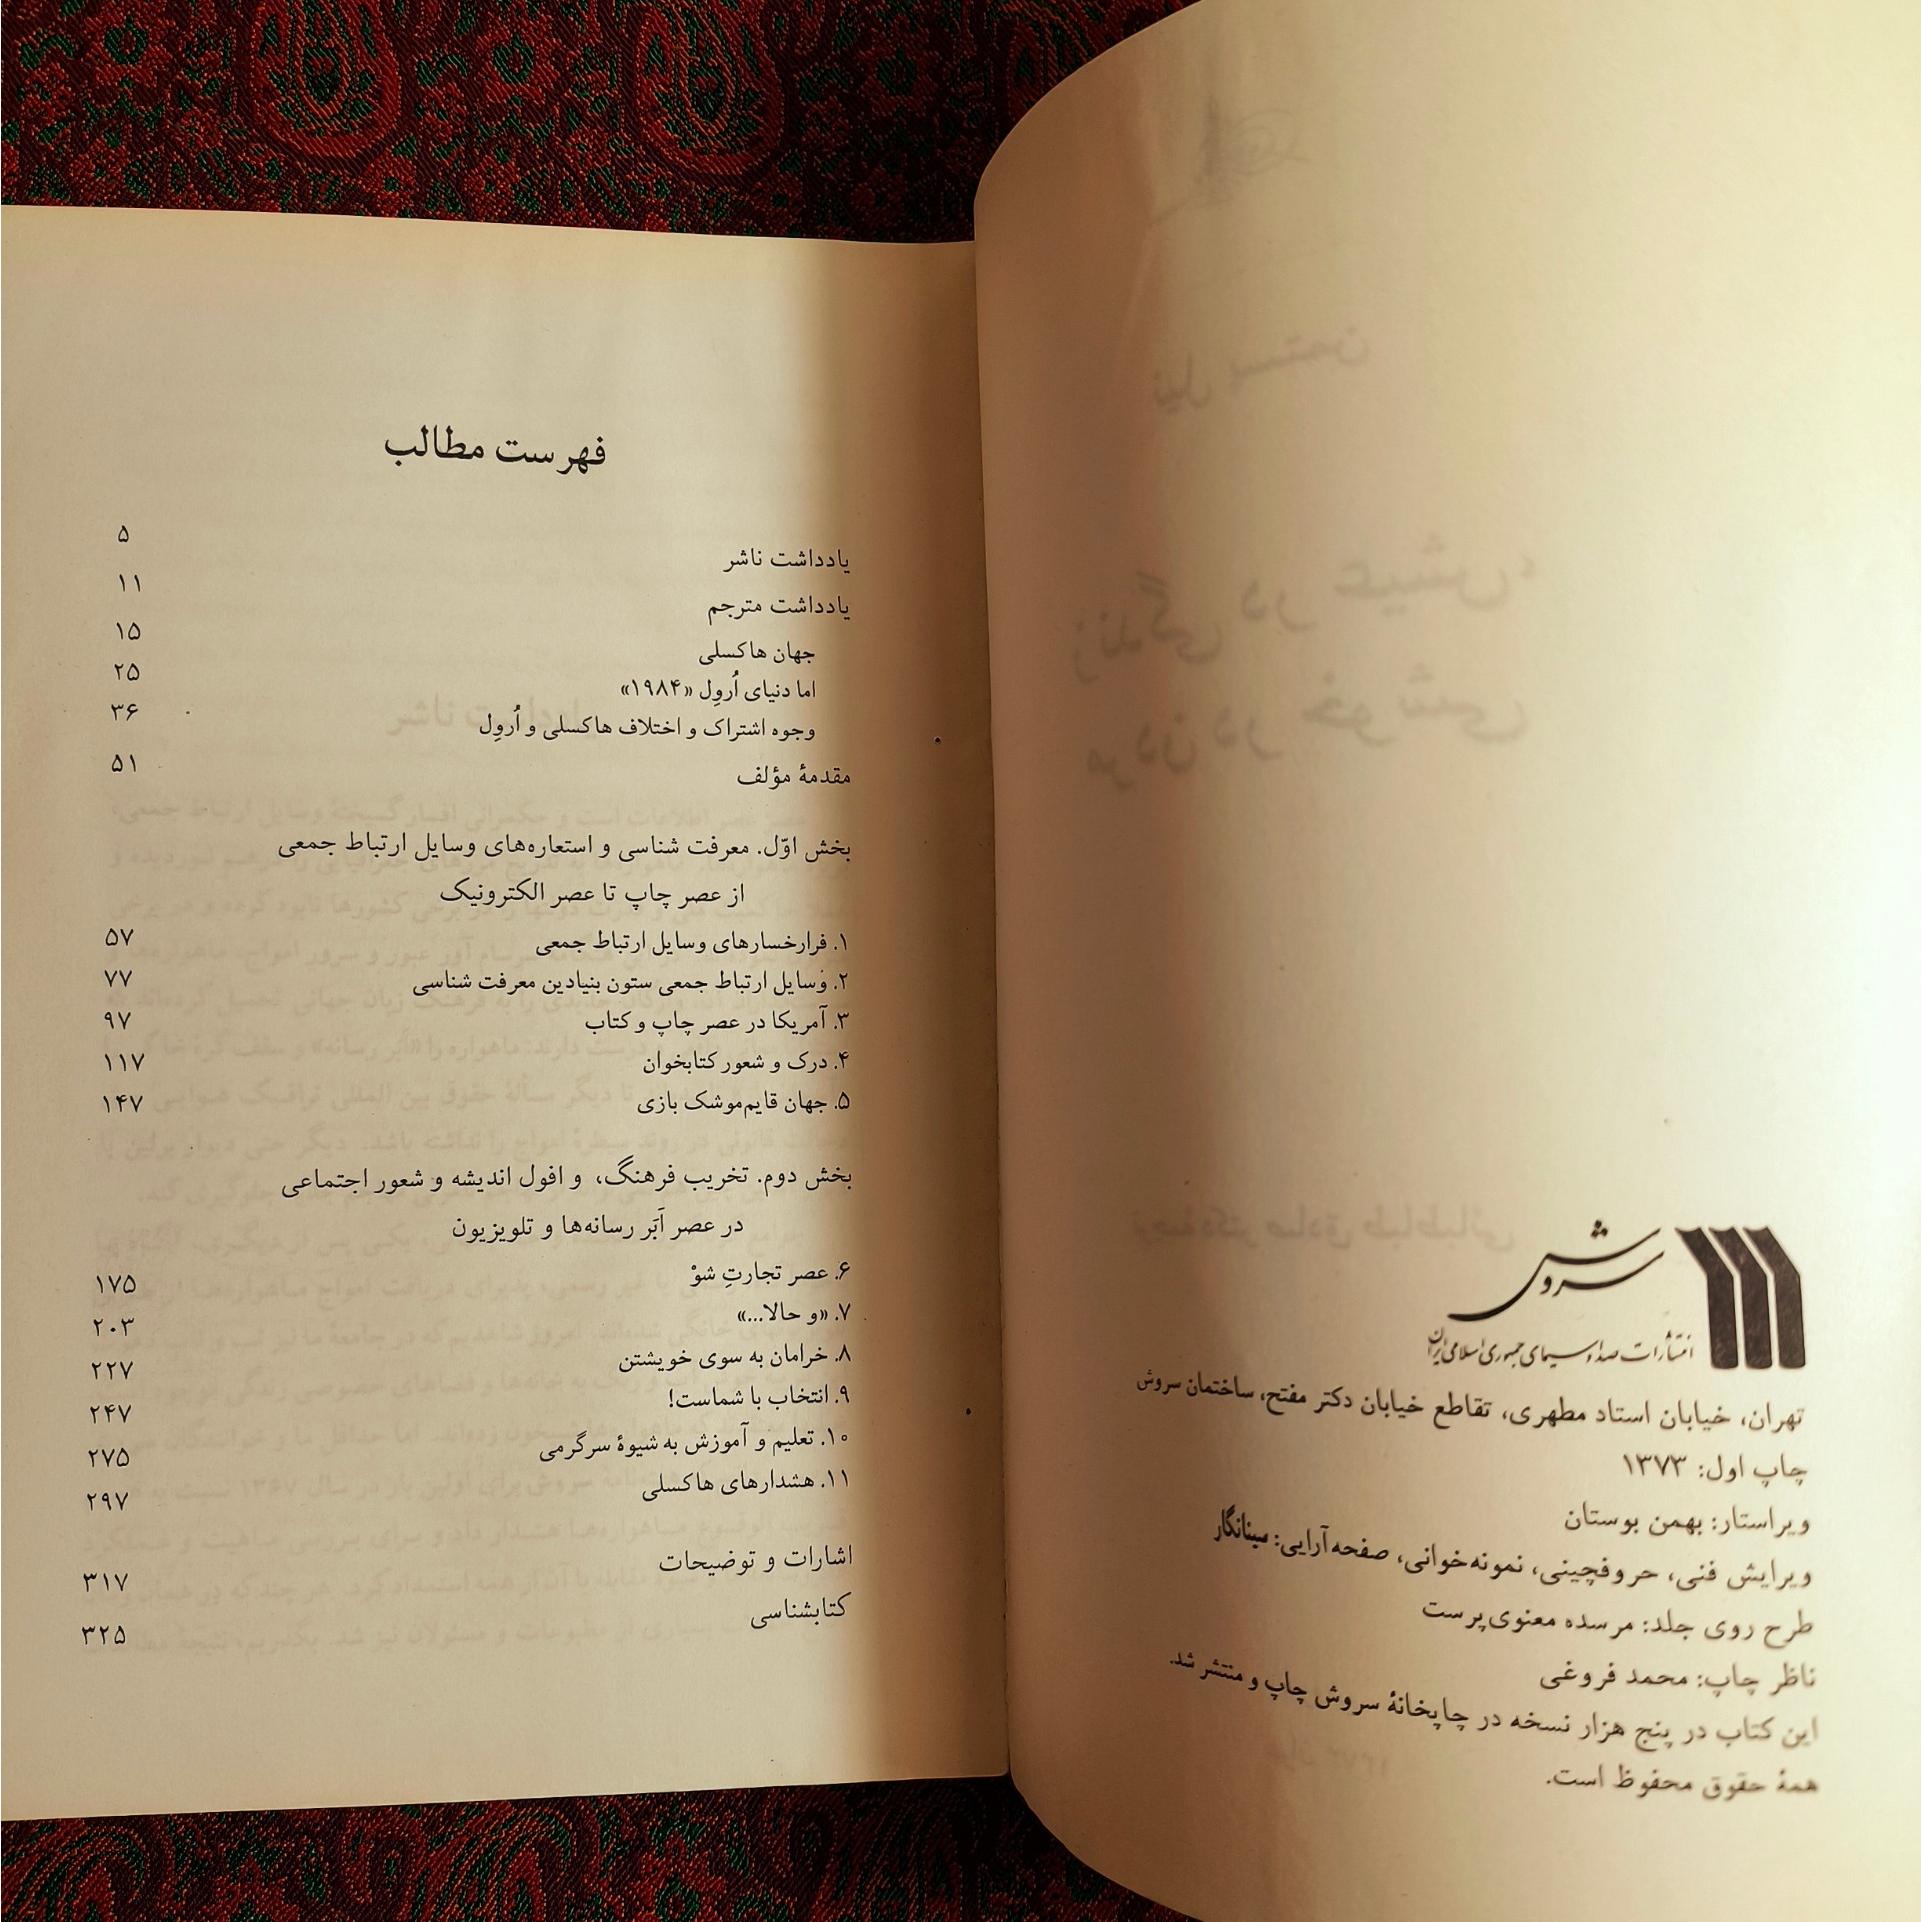 سروش
انتشارات صدا و سیمای جمهوری اسلامی ایران
تهران، خیابان استاد مطهری، تقاطع خیابان دکتر مفتح، ساختمان سروش
چاپ اول: ۱۳۷۳
ویراستار: بهمن بوستان
ویرایش فنی، حروفچینی، نمونه‌خوانی، صفحه‌آرایی: سینانگار
طرح روی جلد: مرسده معنوی‌پرست
ناظر چاپ: محمد فروغی
این کتاب در پنج هزار نسخه در چاپخانهٔ سروش چاپ و منتشر شد.
همهٔ حقوق محفوظ است.
فهرست مطالب
یادداشت ناشر ۵
یادداشت مترجم ۱۱
جهان هاکسلی ۱۵
اما دنیای اُروِل «۱۹۸۴» ۲۵
وجوه اشتراک و اختلاف هاکسلی و اُروِل ۳۶
مقدمهٔ مؤلف ۵۱
بخش اوّل. معرفت شناسی و استعاره‌های وسایل ارتباط جمعی
از عصر چاپ تا عصر الکترونیک
۱. فرارخسارهای وسایل ارتباط جمعی ۵۷
۲. وسایل ارتباط جمعی ستون بنیادین معرفت شناسی ۷۷
۳. آمریکا در عصر چاپ و کتاب ۹۷
۴. درک و شعور کتابخوان ۱۱۷
۵. جهان قایم‌موشک بازی ۱۴۷
بخش دوم. تخریب فرهنگ، و افول اندیشه و شعور اجتماعی
در عصر اَبَر رسانه‌ها و تلویزیون
۶. عصر تجارتِ شوْ ۱۷۵
۷. «و حالا...» ۲۰۳
۸. خرامان به سوی خویشتن ۲۲۷
۹. انتخاب با شماست! ۲۴۷
۱۰. تعلیم و آموزش به شیوهٔ سرگرمی ۲۷۵
۱۱. هشدارهای هاکسلی ۲۹۷
اشارات و توضیحات ۳۱۷
کتابشناسی ۳۲۵